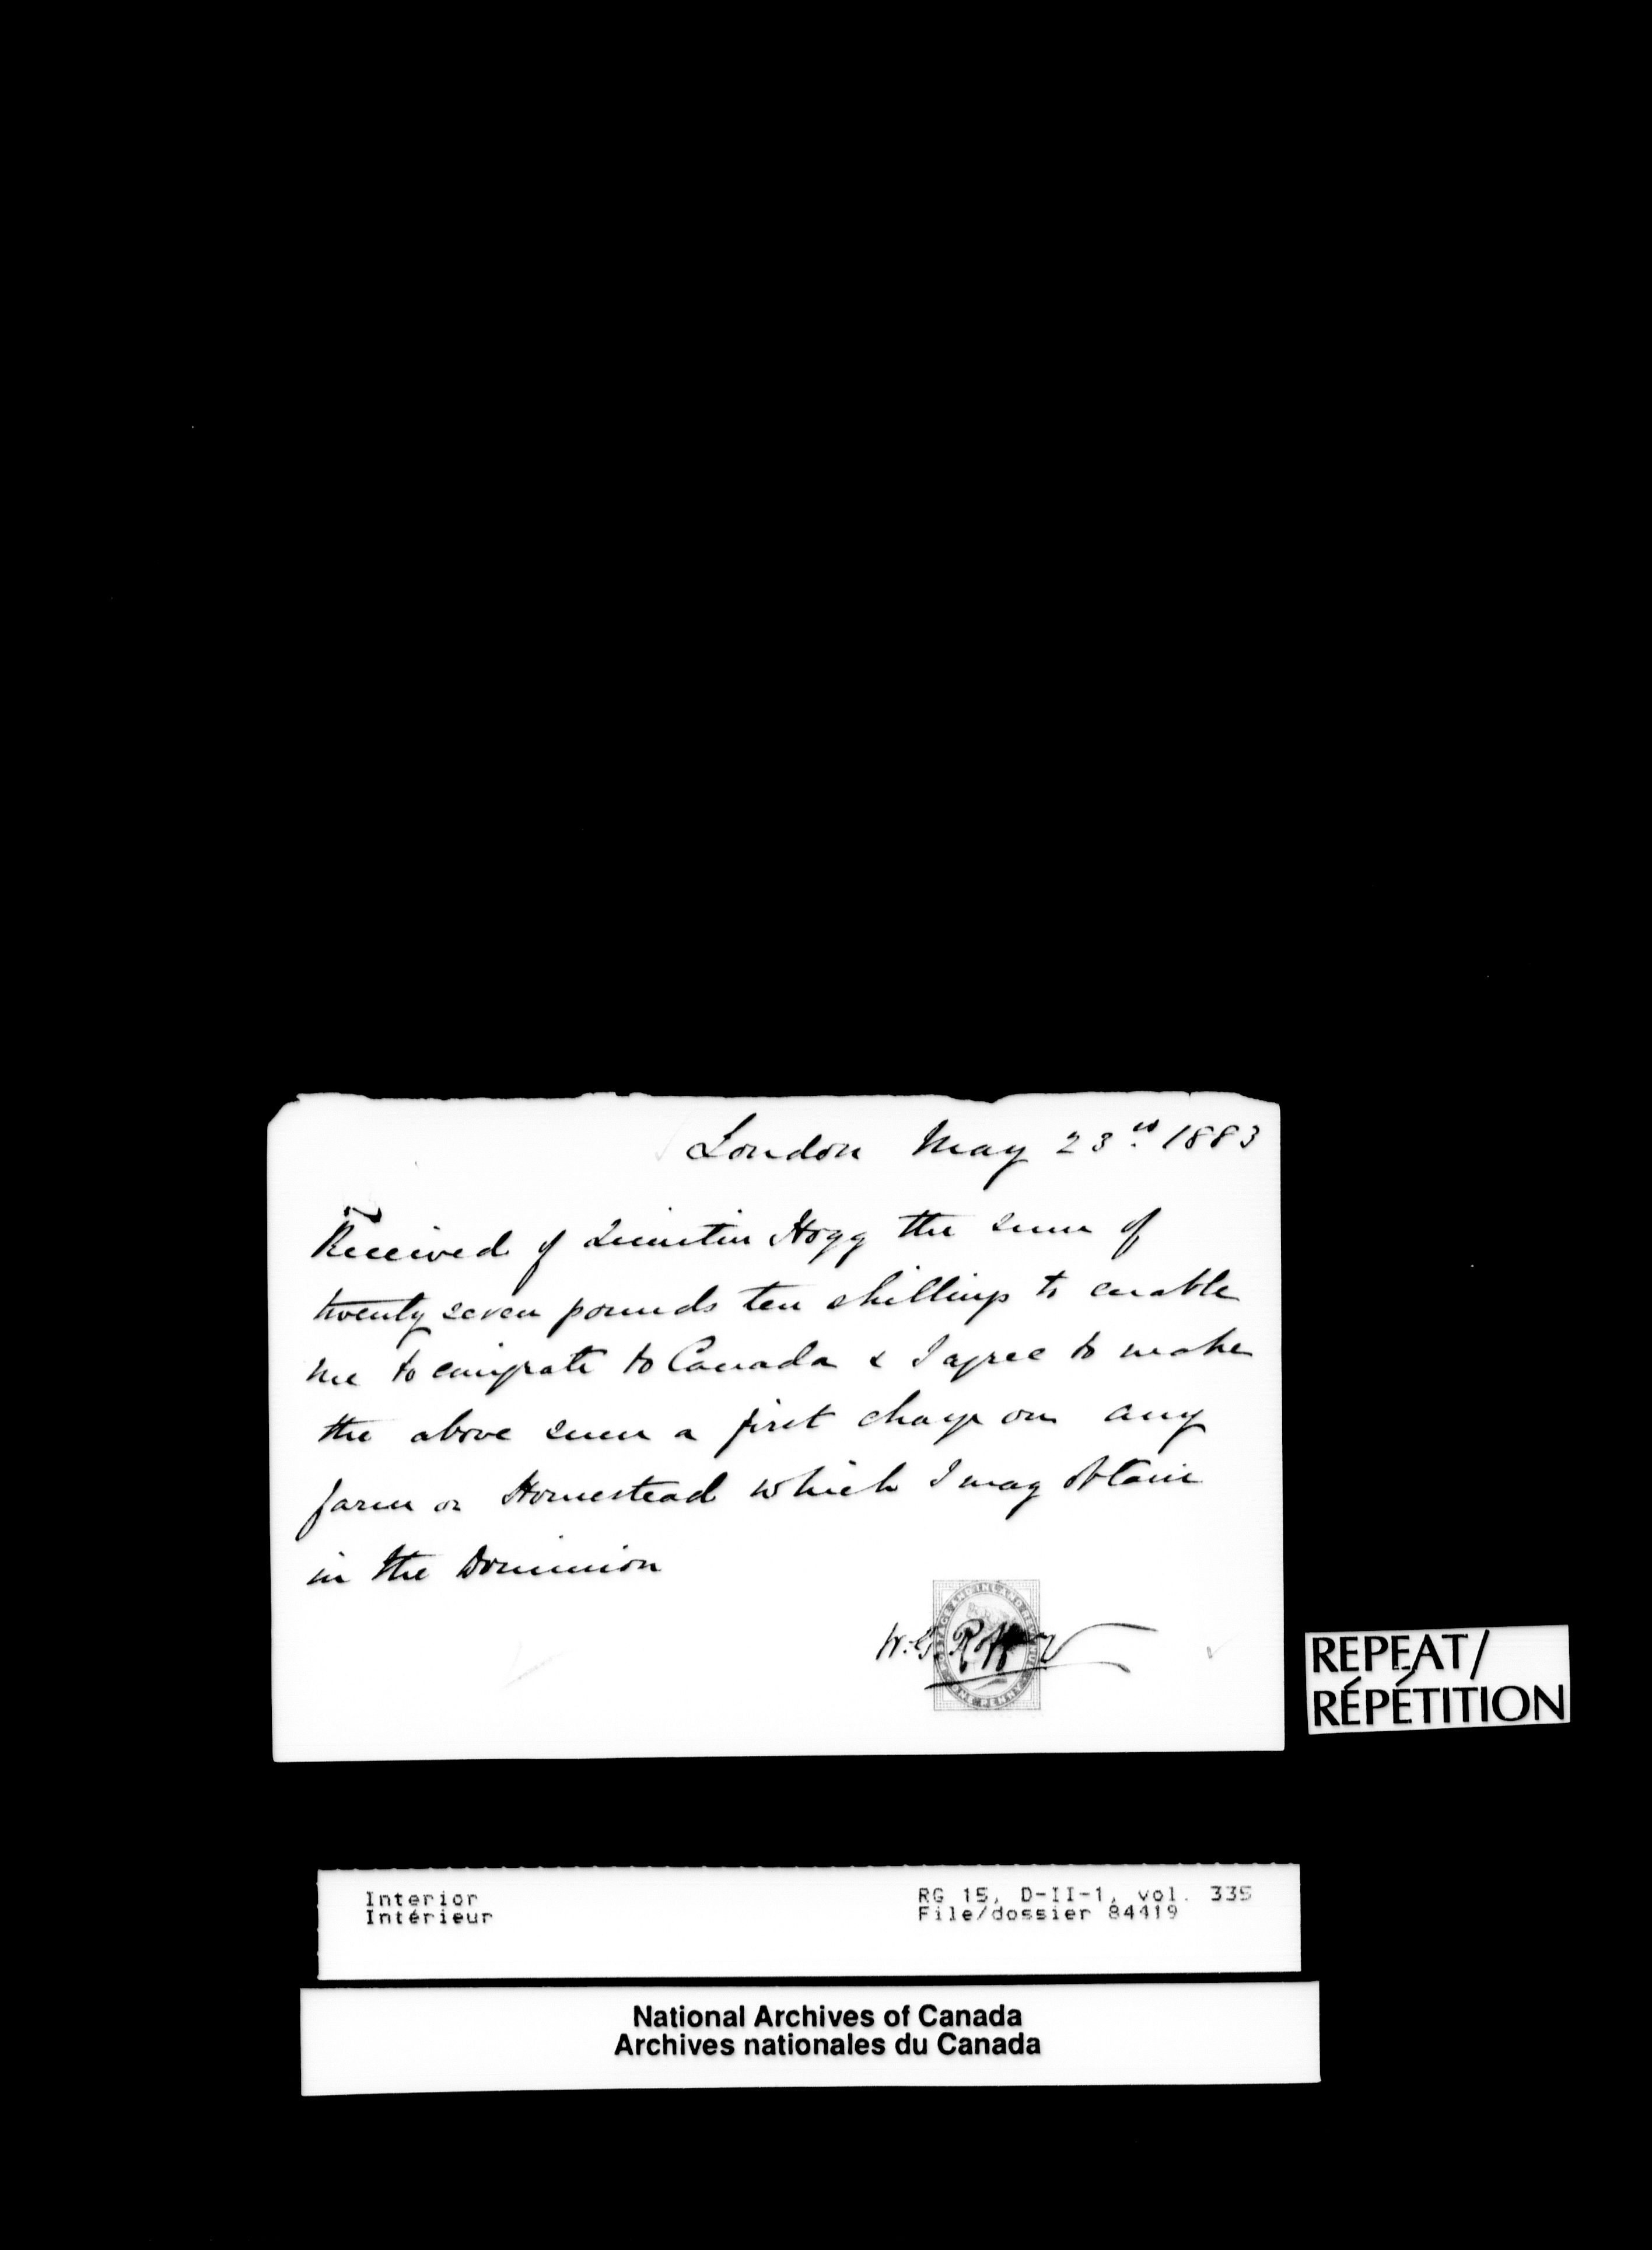 London May 23rd 1883
Received of Quintin Hogg the sum of
twenty seven pounds ten shillings to enable
me to emigrate to Canada & I agree to make
the above sum a first charge on any
farm or Homestead which I may obtain
in the Dominion
POSTAGE AND INLAND REVENUE
W. G.
ONE PENNY
REPEAT/
RÉPÉTITION
Interior
Intérieur
RG 15, D-II-1, vol. 335
File/dossier 84419
National Archives of Canada
Archives nationales du Canada